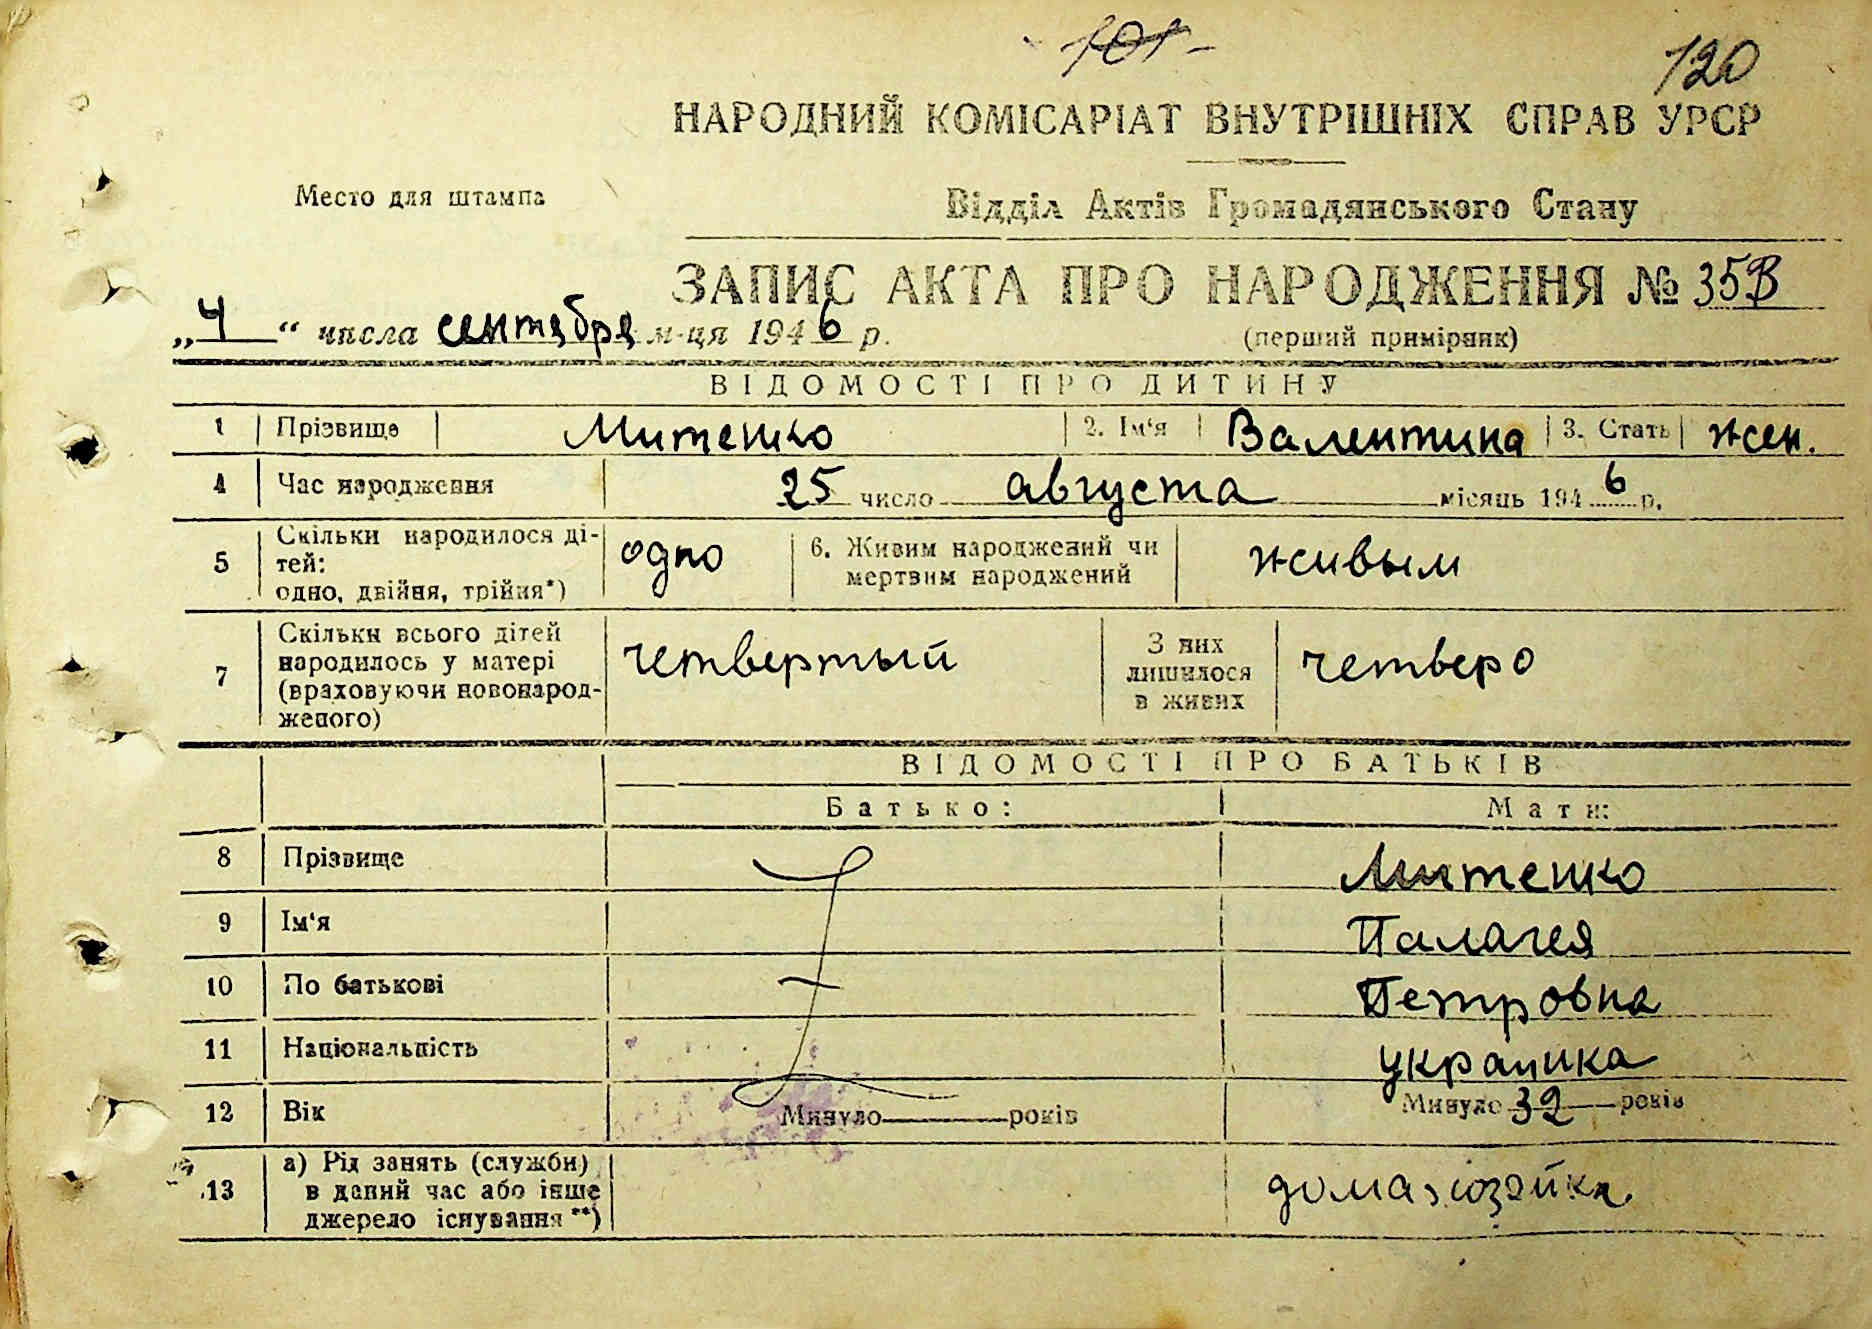 101
120
НАРОДНИЙ КОМІСАРІАТ ВНУТРІШНІХ СПРАВ УРСР
Место для штампа
Відділ Актів Громадянського Стану
ЗАПИС АКТА ПРО НАРОДЖЕННЯ № 35В
„ 4 “ числа сентября м-ця 1946 р.
(перший примірник)
ВІДОМОСТІ ПРО ДИТИНУ
1 Прізвище Митенко 2. Ім'я Валентина 3. Стать жен.
4 Час народження 25 число августа місяць 1946 р.
5 Скільки народилося дітей: одно, двійня, трійня*) одно 6. Живим народжений чи мертвим народжений живым
7 Скільки всього дітей народилось у матері (враховуючи новонародженого) четвертый З них лишилося в живих четверо
ВІДОМОСТІ ПРО БАТЬКІВ
Батько: Мати:
8 Прізвище Митенко
9 Ім'я Палагея
10 По батькові Петровна
11 Національність украинка
12 Вік Минуло років Минуло 32 років
13 а) Рід занять (служби) в даний час або інше джерело існування **) домахозяйка